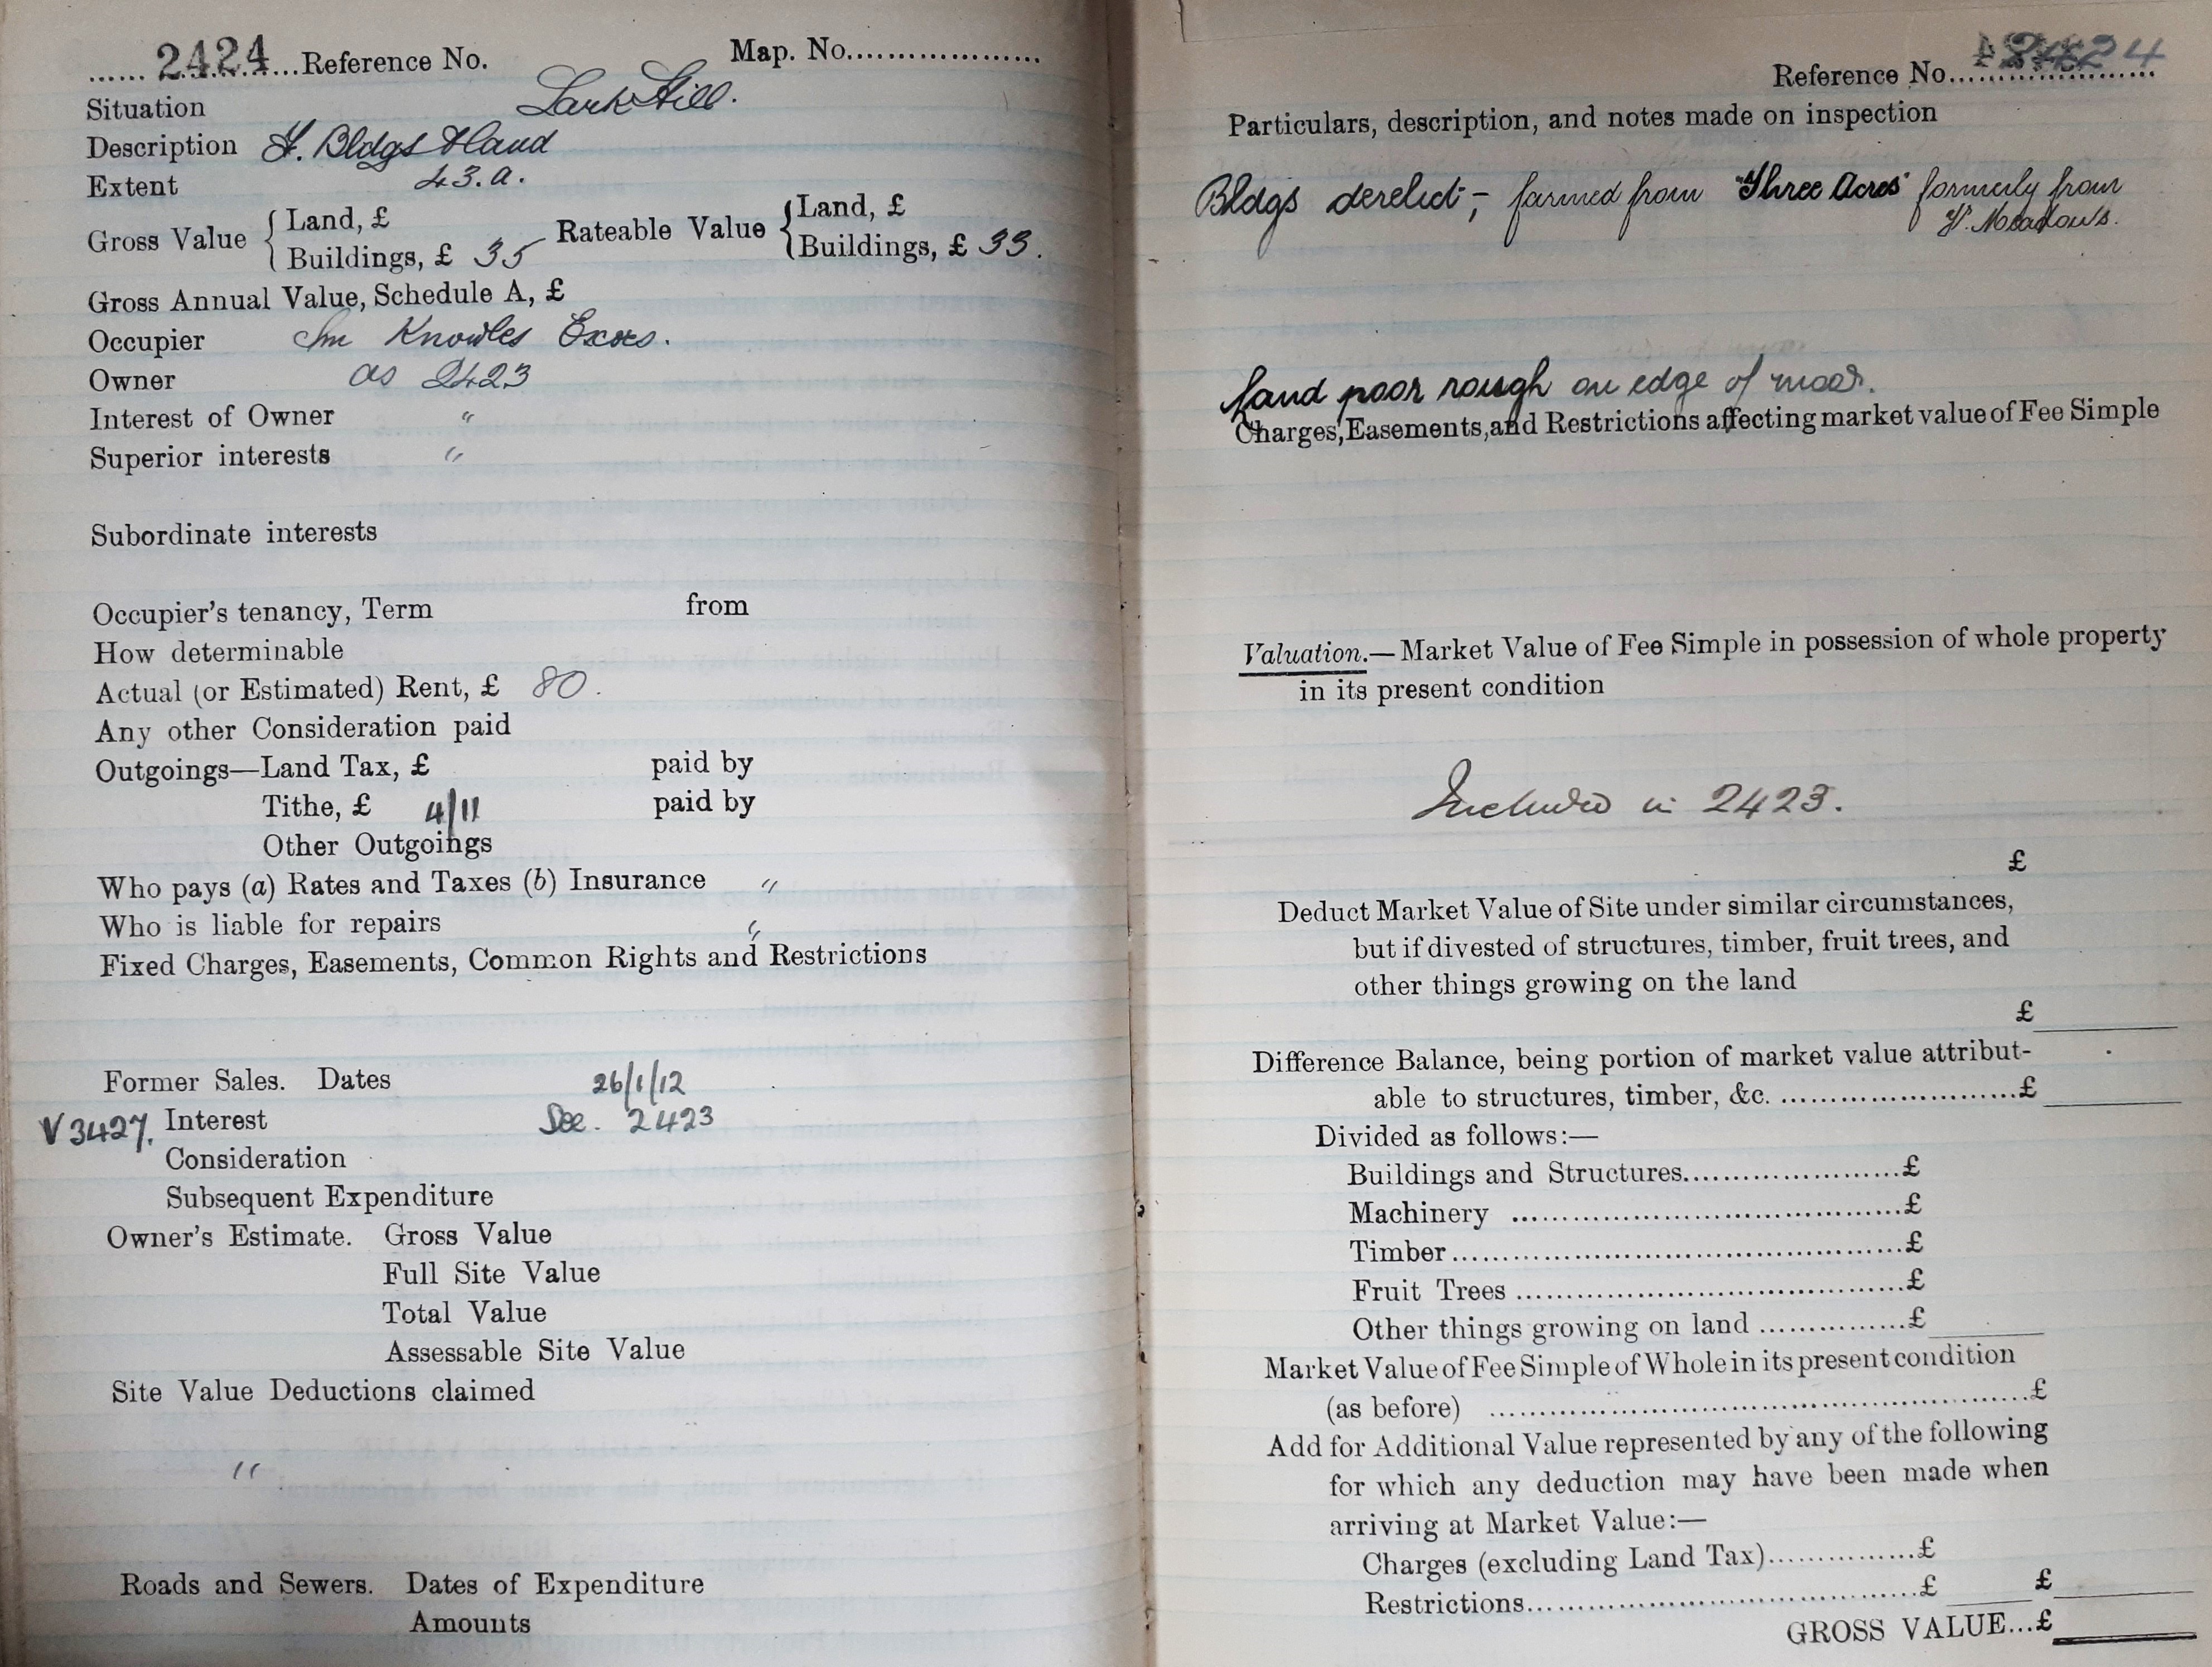 ...... 2424 ...Reference No. Map. No....................
Situation Lark Hill.
Description F. Bldgs & land
Extent 43.a.
Gross Value { Land, £
Buildings, £ 35
Rateable Value { Land, £
Buildings, £ 33.
Gross Annual Value, Schedule A, £
Occupier Knowles Exors.
Owner as 2423
Interest of Owner "
Superior interests "
Subordinate interests
Occupier's tenancy, Term from
How determinable
Actual (or Estimated) Rent, £ 80.
Any other Consideration paid
Outgoings—Land Tax, £ paid by
Tithe, £ 4/11 paid by
Other Outgoings
Who pays (a) Rates and Taxes (b) Insurance "
Who is liable for repairs "
Fixed Charges, Easements, Common Rights and Restrictions
Former Sales. Dates 26/1/12
V 3427. Interest See. 2423
Consideration
Subsequent Expenditure
Owner's Estimate. Gross Value
Full Site Value
Total Value
Assessable Site Value
Site Value Deductions claimed
"
Roads and Sewers. Dates of Expenditure
Amounts
Reference No. 2424
Particulars, description, and notes made on inspection
Bldgs derelict;- farmed from "Three Acres" formerly from
H. Meadows.
Land poor rough on edge of moor.
Charges, Easements, and Restrictions affecting market value of Fee Simple
Valuation.—Market Value of Fee Simple in possession of whole property
in its present condition
Included in 2423.
£
Deduct Market Value of Site under similar circumstances,
but if divested of structures, timber, fruit trees, and
other things growing on the land
£
Difference Balance, being portion of market value attribut-
able to structures, timber, &c. ...........................£
Divided as follows:—
Buildings and Structures.......................£
Machinery .........................................£
Timber................................................£
Fruit Trees .........................................£
Other things growing on land ...............£
Market Value of Fee Simple of Whole in its present condition
(as before) .........................................................£
Add for Additional Value represented by any of the following
for which any deduction may have been made when
arriving at Market Value:—
Charges (excluding Land Tax)...............£
Restrictions.......................................£ £
GROSS VALUE...£